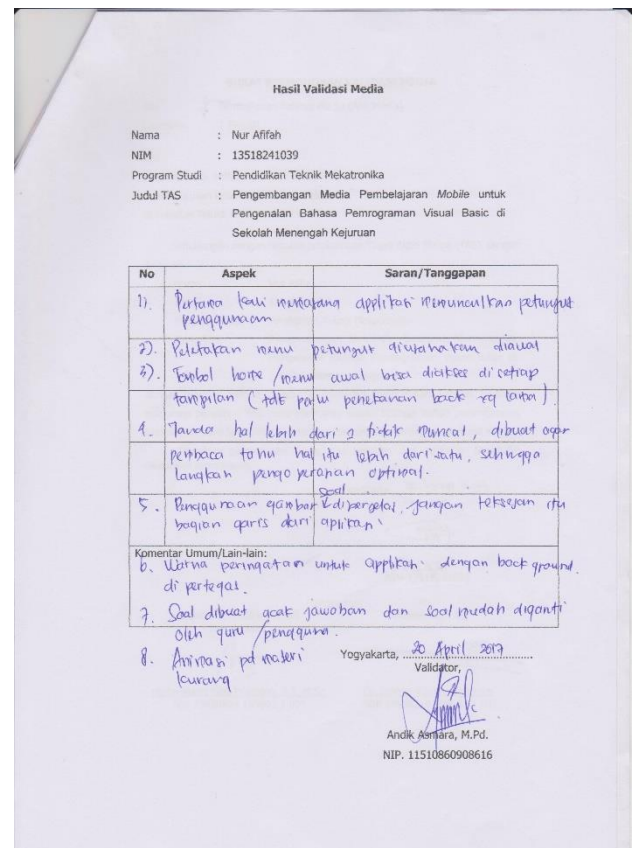 Hasil Validasi Media
Nama : Nur Afifah
NIM : 13518241039
Program Studi : Pendidikan Teknik Mekatronika
Judul TAS : Pengembangan Media Pembelajaran Mobile untuk
Pengenalan Bahasa Pemrograman Visual Basic di
Sekolah Menengah Kejuruan
No Aspek Saran/Tanggapan
1). Pertama kali memasang applikasi memunculkan petunjuk
penggunaan
2). Peletakan menu petunjuk diutamakan diawal
3). Tombol home /menu awal bisa diakses di setiap
tampilan ( tdk perlu penekanan back yg lama )
4. Tanda hal lebih dari 2 tidak muncul, dibuat agar
pembaca tahu hal itu lebih dari satu, sehingga
langkah pengoperasian optimal.
5. Penggunaan gambar soal diperjelas, jangan terkesan itu
bagian garis dari aplikasi
Komentar Umum/Lain-lain:
6. Warna peringatan untuk applikasi dengan background
di pertegas.
7. Soal dibuat acak jawaban dan soal mudah diganti
oleh guru /pengguna.
8. Animasi pd materi
kurang
Yogyakarta, 20 April 2017
Validator,
Andik Asmara, M.Pd.
NIP. 11510860908616